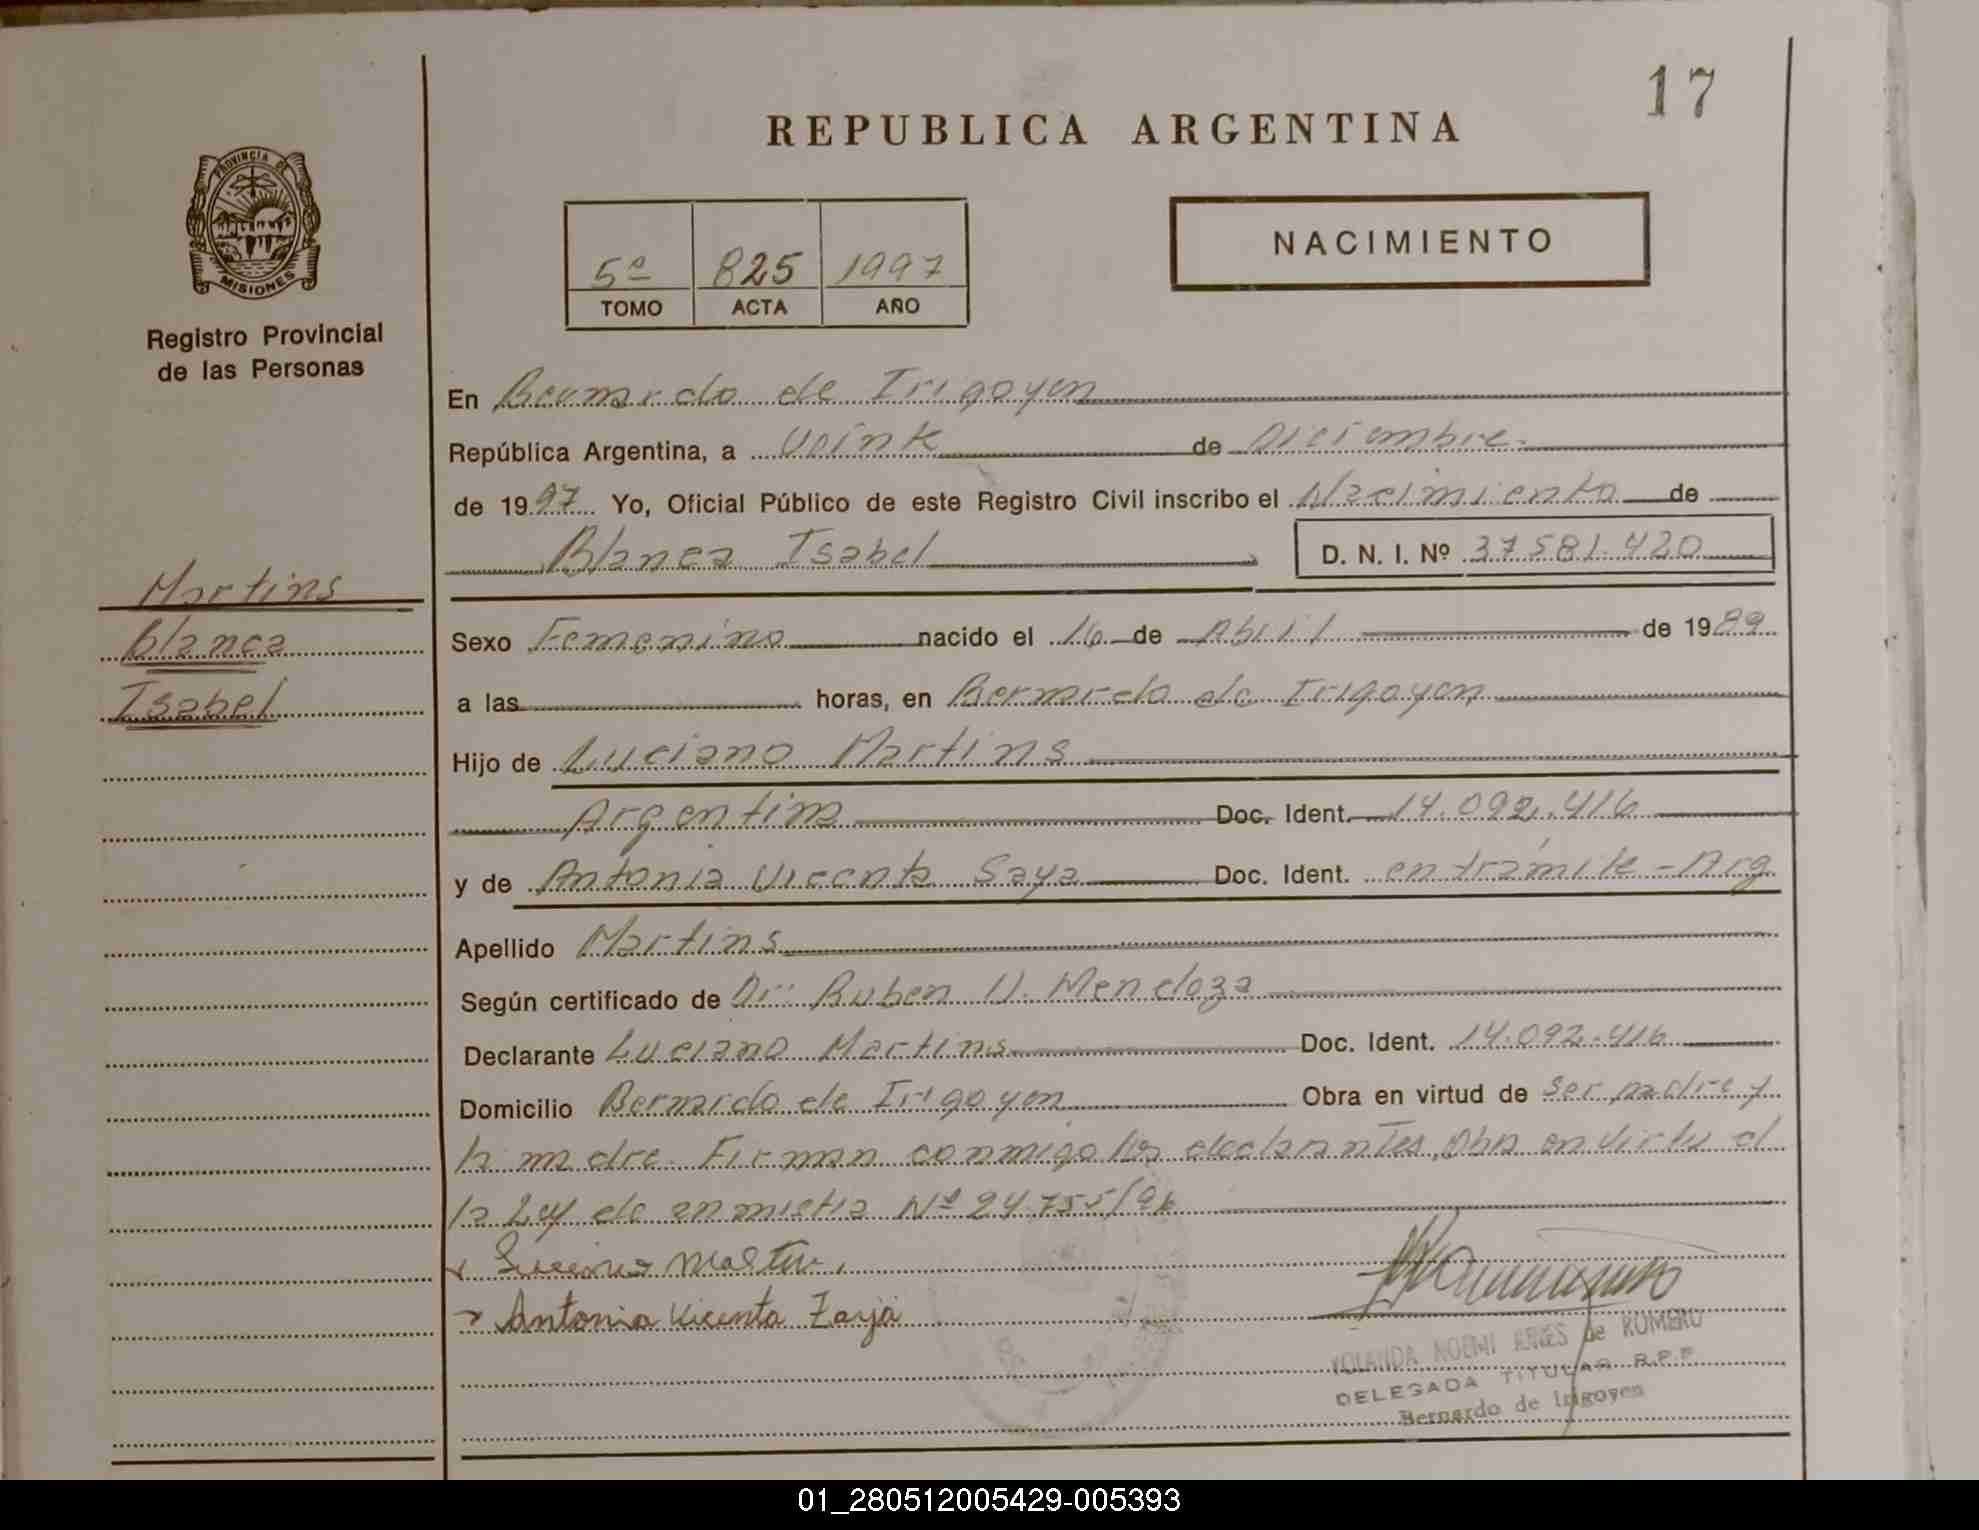 17
REPUBLICA ARGENTINA
PROVINCIA DE
MISIONES
Registro Provincial
de las Personas
5º 825 1997
TOMO ACTA AÑO
NACIMIENTO
En Bernardo de Irigoyen
República Argentina, a de Diciembre
de 1997 Yo, Oficial Público de este Registro Civil inscribo el Nacimiento de
Blanca Isabel D. N. I. Nº 37581.420
Martins
Blanca
Isabel
Sexo Femenino nacido el 16 de Abril de 1989
a las horas, en Bernardo de Irigoyen
Hijo de Luciano Martins
Argentina Doc. Ident. 14.092.416
y de Antonia Vicenta Saya Doc. Ident. en trámite - Arg
Apellido Martins
Según certificado de Dr: Ruben V. Mendoza
Declarante Luciano Martins Doc. Ident. 14.092.416
Domicilio Bernardo de Irigoyen Obra en virtud de ser padre y
la madre. Firman conmigo los declarantes, obra en virtud
la Ley de anmistia Nº 24.755/96
Antonia Vicenta Zarja
YOLANDA NOEMI de ROMERO
DELEGADA TITULAR R.P.P.
Bernardo de Irigoyen
01_280512005429-005393